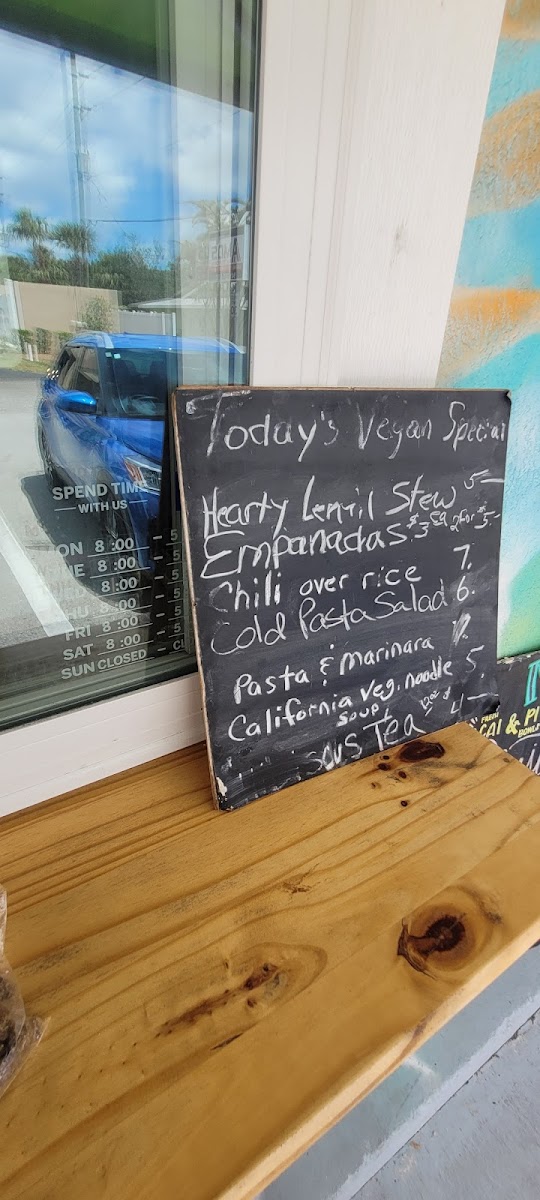 Today's Vegan Special
Hearty Lentil Stew 5-
Empanadas $3 ea 2 for $5-
Chili over rice 7.
Cold Pasta Salad 6.
Pasta & marinara
California veg. noodle 5
soup
Tea 4-
SPEND TIME
— WITH US —
ON 8:00 - 5
UE 8:00 - 5
ED 8:00 - 5
HU 8:00 - 5
FRI 8:00 - 5
SAT 8:00 - 5
SUN CLOSED - Cl
FRESH
CAI & PI
BOWL